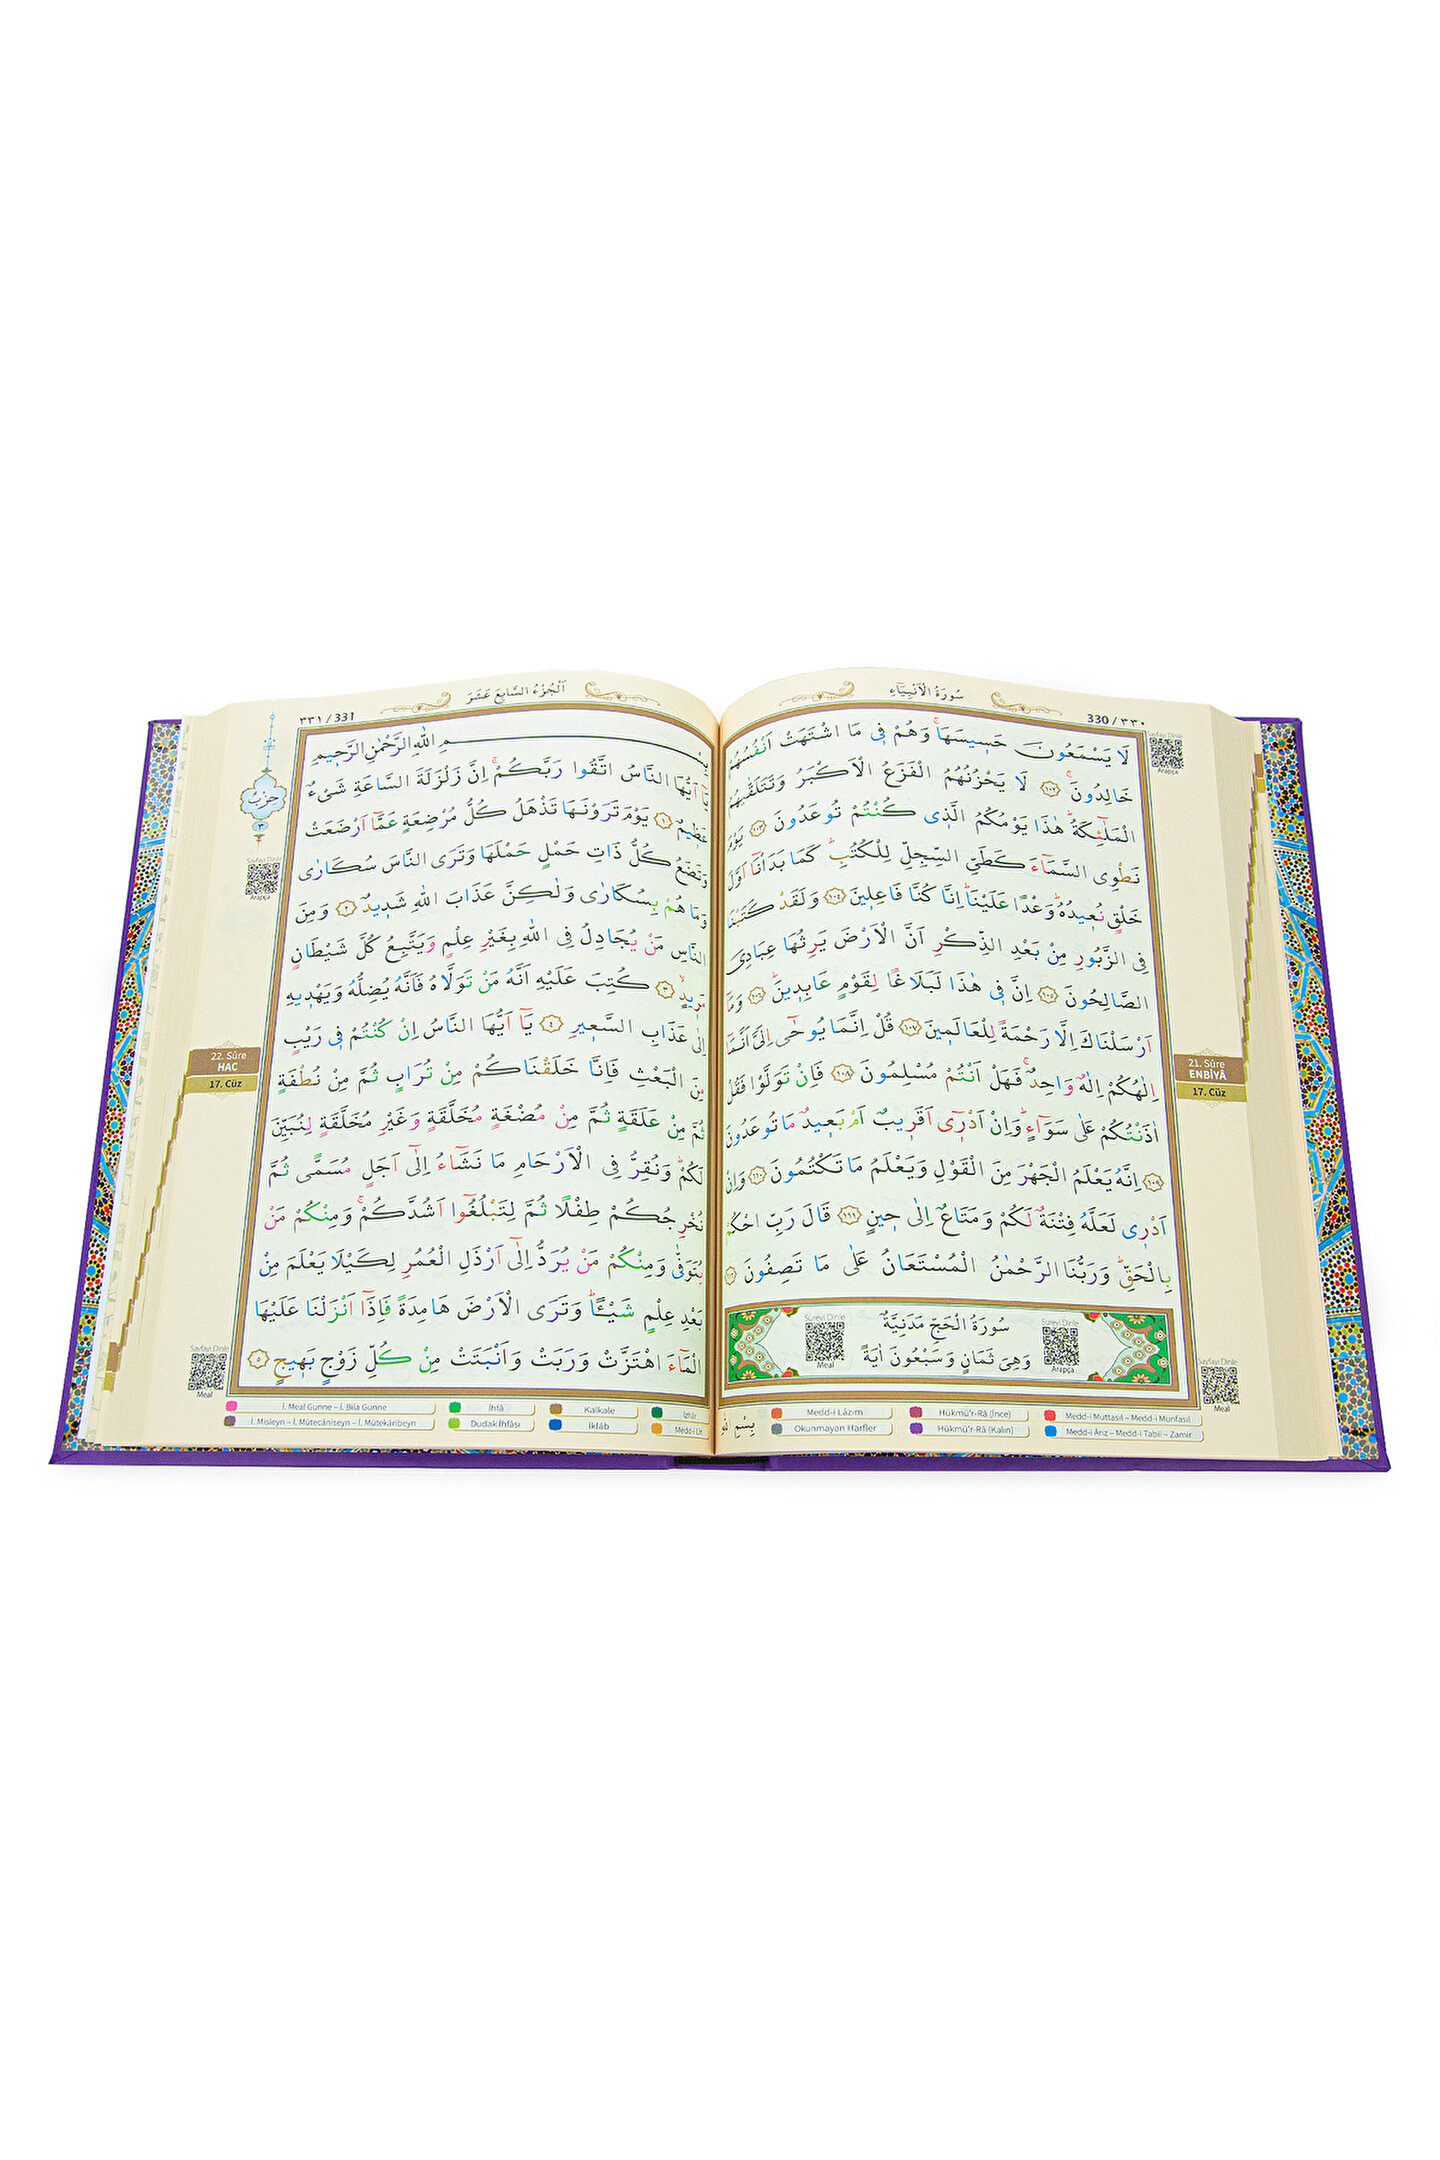 سُورَةُ الْاَنْبِيَاءِ
330 / ٣٣٠
لَا يَسْمَعُونَ حَسٖيسَهَاۚ وَهُمْ فٖي مَا اشْتَهَتْ اَنْفُسُهُمْ
خَالِدُونَۚ ﴿١٠٢﴾ لَا يَحْزُنُهُمُ الْفَزَعُ الْاَكْبَرُ وَتَتَلَقّٰيهُمُ
الْمَلٰٓئِكَةُۜ هٰذَا يَوْمُكُمُ الَّذٖي كُنْتُمْ تُوعَدُونَ ﴿١٠٣﴾ يَوْمَ
نَطْوِي السَّمَٓاءَ كَطَيِّ السِّجِلِّ لِلْكُتُبِۜ كَمَا بَدَأْنَٓا اَوَّلَ
خَلْقٍ نُعٖيدُهُۜ وَعْدًا عَلَيْنَاۜ اِنَّا كُنَّا فَاعِلٖينَ ﴿١٠٤﴾ وَلَقَدْ كَتَبْنَا
فِي الزَّبُورِ مِنْ بَعْدِ الذِّكْرِ اَنَّ الْاَرْضَ يَرِثُهَا عِبَادِيَ
الصَّالِحُونَ ﴿١٠٥﴾ اِنَّ فٖي هٰذَا لَبَلَاغًا لِقَوْمٍ عَابِدٖينَۜ ﴿١٠٦﴾ وَمَٓا
اَرْسَلْنَاكَ اِلَّا رَحْمَةً لِلْعَالَمٖينَ ﴿١٠٧﴾ قُلْ اِنَّمَا يُوحٰٓى اِلَيَّ اَنَّمَٓا
اِلٰهُكُمْ اِلٰهٌ وَاحِدٌۚ فَهَلْ اَنْتُمْ مُسْلِمُونَ ﴿١٠٨﴾ فَاِنْ تَوَلَّوْا فَقُلْ
اٰذَنْتُكُمْ عَلٰى سَوَٓاءٍۜ وَاِنْ اَدْرٖٓي اَقَرٖيبٌ اَمْ بَعٖيدٌ مَا تُوعَدُونَ
﴿١٠٩﴾ اِنَّهُ يَعْلَمُ الْجَهْرَ مِنَ الْقَوْلِ وَيَعْلَمُ مَا تَكْتُمُونَ ﴿١١٠﴾ وَاِنْ
اَدْرٖي لَعَلَّهُ فِتْنَةٌ لَكُمْ وَمَتَاعٌ اِلٰى حٖينٍ ﴿١١١﴾ قَالَ رَبِّ احْكُمْ
بِالْحَقِّۜ وَرَبُّنَا الرَّحْمٰنُ الْمُسْتَعَانُ عَلٰى مَا تَصِفُونَ ﴿١١٢﴾
سُورَةُ الْحَجِّ مَدَنِيَّةٌ
وَهِيَ ثَمَانٍ وَسَبْعُونَ اٰيَةً
Sûreyi Dinle
Meal
Sûreyi Dinle
Arapça
Sayfayı Dinle
Arapça
21. Sûre
ENBİYÂ
17. Cüz
Sayfayı Dinle
Meal
بِسْمِ اللهِ
Medd-i Lâzım
Hükmü'r-Râ (İnce)
Medd-i Muttasıl – Medd-i Munfasıl
Okunmayan Harfler
Hükmü'r-Râ (Kalın)
Medd-i Ârız – Medd-i Tabii – Zamir
اَلْجُزْءُ السَّابِعَ عَشَرَ
٣٣١ / 331
بِسْمِ اللهِ الرَّحْمٰنِ الرَّحٖيمِ
يَٓا اَيُّهَا النَّاسُ اتَّقُوا رَبَّكُمْۚ اِنَّ زَلْزَلَةَ السَّاعَةِ شَيْءٌ
عَظٖيمٌ ﴿١﴾ يَوْمَ تَرَوْنَهَا تَذْهَلُ كُلُّ مُرْضِعَةٍ عَمَّٓا اَرْضَعَتْ
وَتَضَعُ كُلُّ ذَاتِ حَمْلٍ حَمْلَهَا وَتَرَى النَّاسَ سُكَارٰى
وَمَا هُمْ بِسُكَارٰى وَلٰكِنَّ عَذَابَ اللهِ شَدٖيدٌ ﴿٢﴾ وَمِنَ
النَّاسِ مَنْ يُجَادِلُ فِي اللهِ بِغَيْرِ عِلْمٍ وَيَتَّبِعُ كُلَّ شَيْطَانٍ
مَرٖيدٍۙ ﴿٣﴾ كُتِبَ عَلَيْهِ اَنَّهُ مَنْ تَوَلَّاهُ فَاَنَّهُ يُضِلُّهُ وَيَهْدٖيهِ
اِلٰى عَذَابِ السَّعٖيرِ ﴿٤﴾ يَٓا اَيُّهَا النَّاسُ اِنْ كُنْتُمْ فٖي رَيْبٍ
مِنَ الْبَعْثِ فَاِنَّا خَلَقْنَاكُمْ مِنْ تُرَابٍ ثُمَّ مِنْ نُطْفَةٍ
ثُمَّ مِنْ عَلَقَةٍ ثُمَّ مِنْ مُضْغَةٍ مُخَلَّقَةٍ وَغَيْرِ مُخَلَّقَةٍ لِنُبَيِّنَ
لَكُمْۜ وَنُقِرُّ فِي الْاَرْحَامِ مَا نَشَٓاءُ اِلٰٓى اَجَلٍ مُسَمًّى ثُمَّ
نُخْرِجُكُمْ طِفْلًا ثُمَّ لِتَبْلُغُٓوا اَشُدَّكُمْۚ وَمِنْكُمْ مَنْ
يُتَوَفّٰى وَمِنْكُمْ مَنْ يُرَدُّ اِلٰٓى اَرْذَلِ الْعُمُرِ لِكَيْلَا يَعْلَمَ مِنْ
بَعْدِ عِلْمٍ شَيْـًٔاۜ وَتَرَى الْاَرْضَ هَامِدَةً فَاِذَٓا اَنْزَلْنَا عَلَيْهَا
الْمَٓاءَ اهْتَزَّتْ وَرَبَتْ وَاَنْبَتَتْ مِنْ كُلِّ زَوْجٍ بَهٖيجٍ ﴿٥﴾
حِزْبٌ
٣
Sayfayı Dinle
Arapça
22. Sûre
HAC
17. Cüz
Sayfayı Dinle
Meal
İ. Meal Gunne – İ. Bila Gunne
İhfâ
Kalkale
İzhâr
İ. Misleyn – İ. Mütecâniseyn – İ. Mütekâribeyn
Dudak İhfâsı
İklâb
Medd-i Lîn